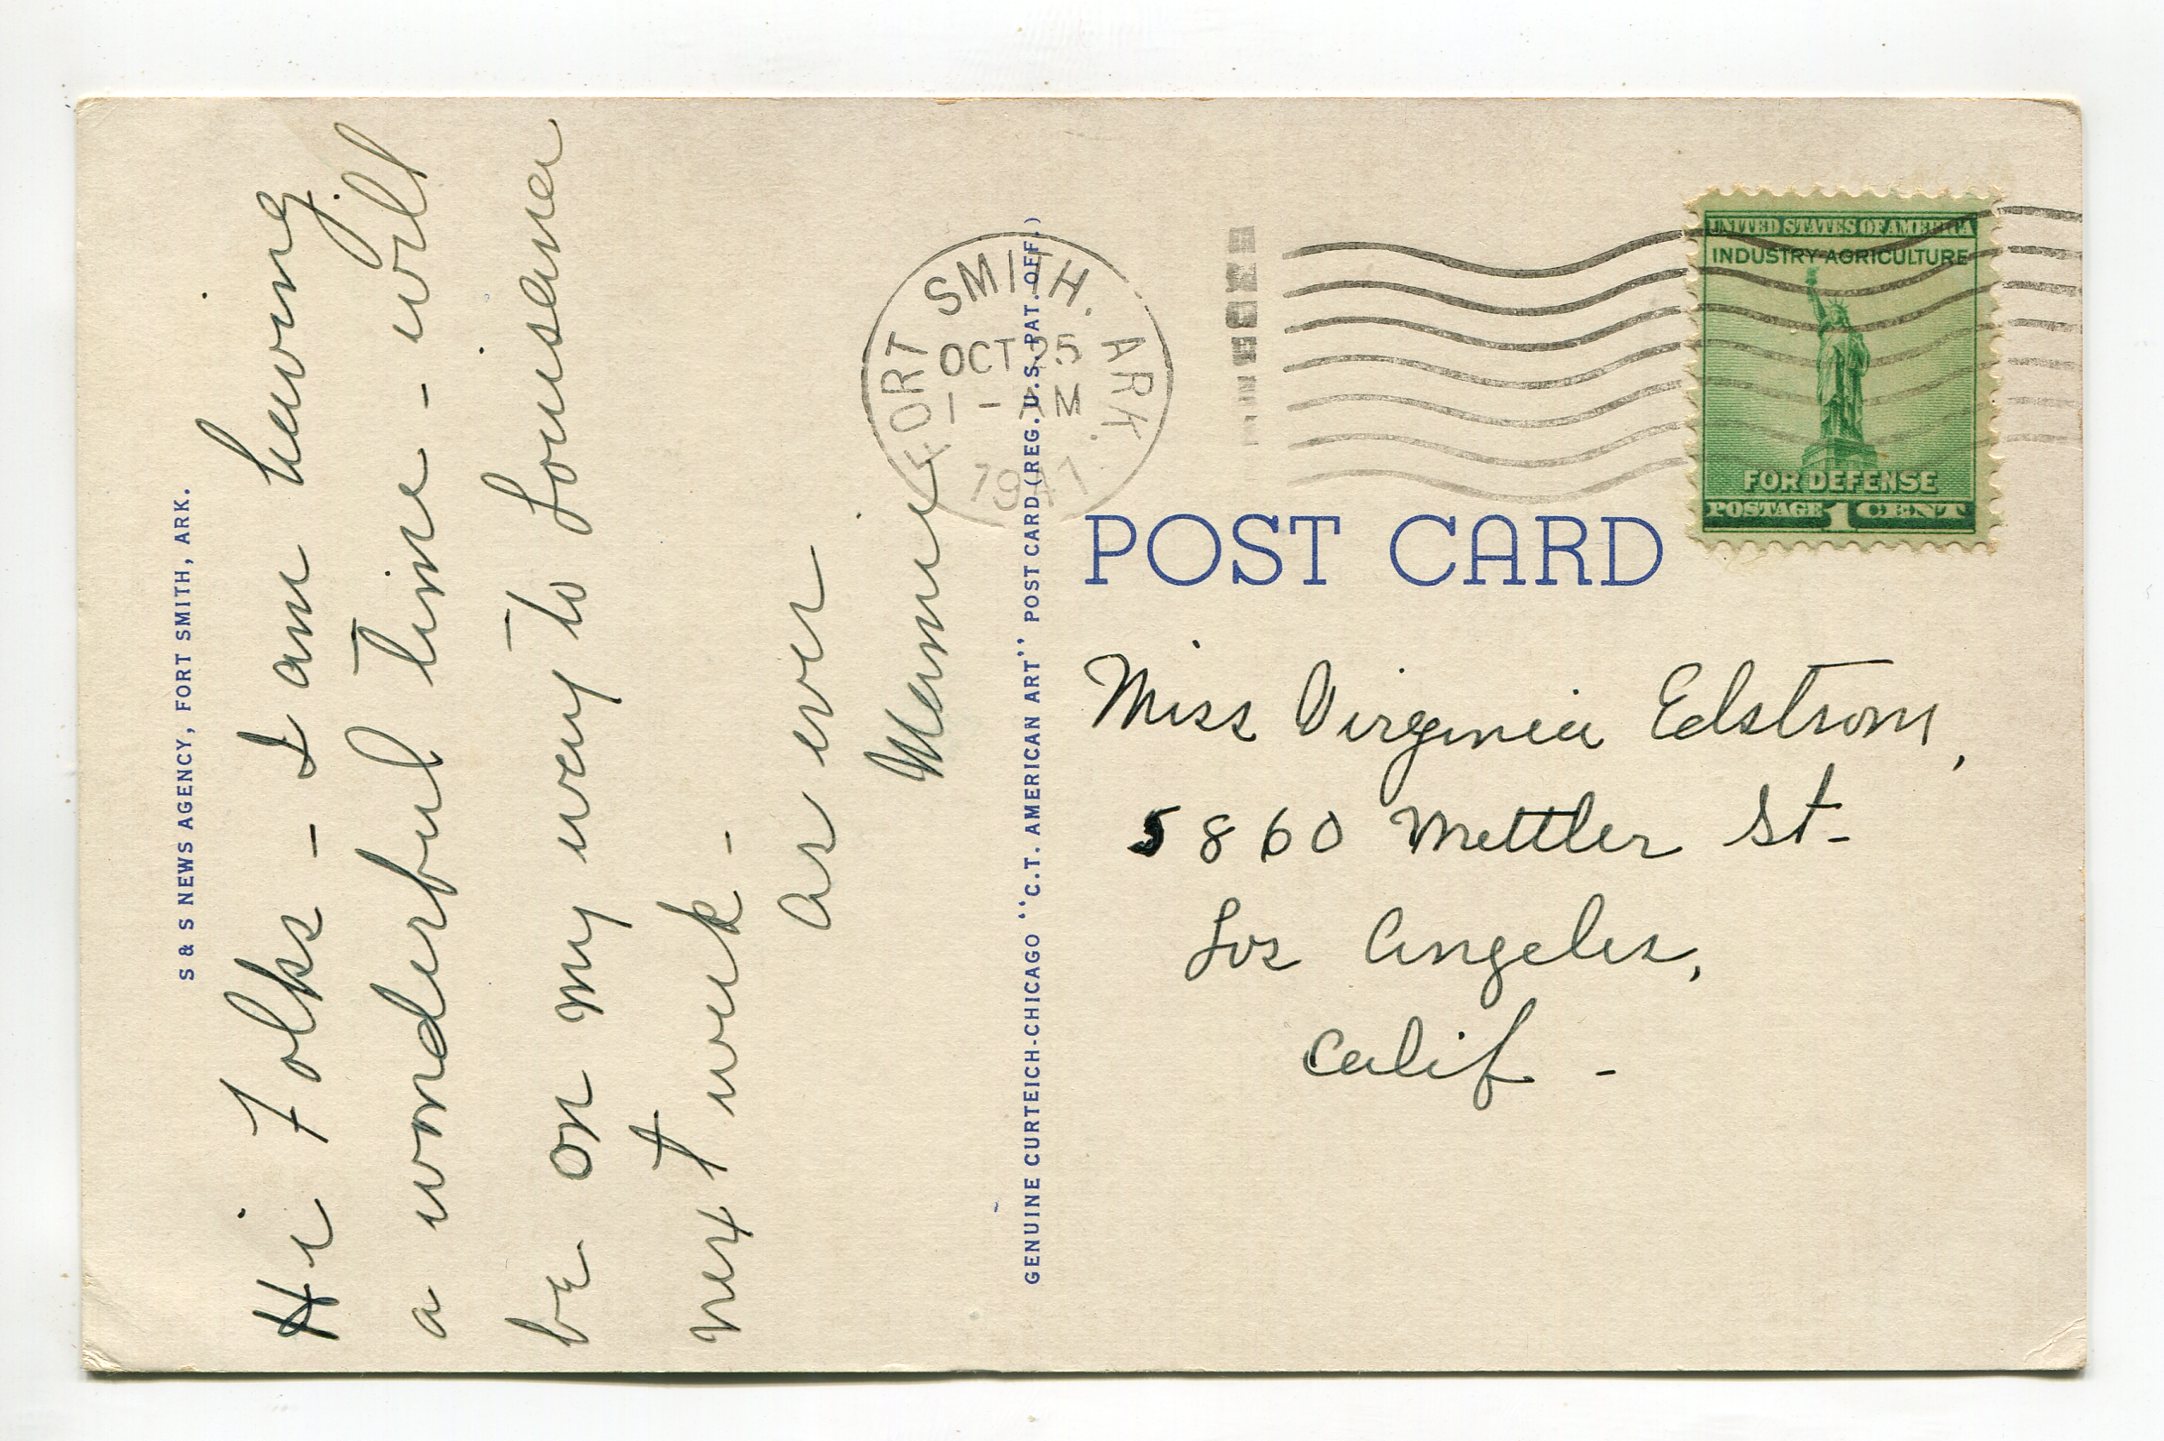 S & S NEWS AGENCY, FORT SMITH, ARK.
Hi Folks - I am having
a wonderful time - will
be on my way to Louisana
next week -
as ever
Mamie
GENUINE CURTEICH-CHICAGO "C.T. AMERICAN ART" POST CARD (REG. U.S. PAT. OFF.)
FORT SMITH. ARK.
OCT 25
1 - AM
1941
UNITED STATES OF AMERICA
INDUSTRY AGRICULTURE
FOR DEFENSE
POSTAGE 1 CENT
POST CARD
Miss Virginia Edstrom,
5860 Mettler St-
Los Angeles,
Calif -